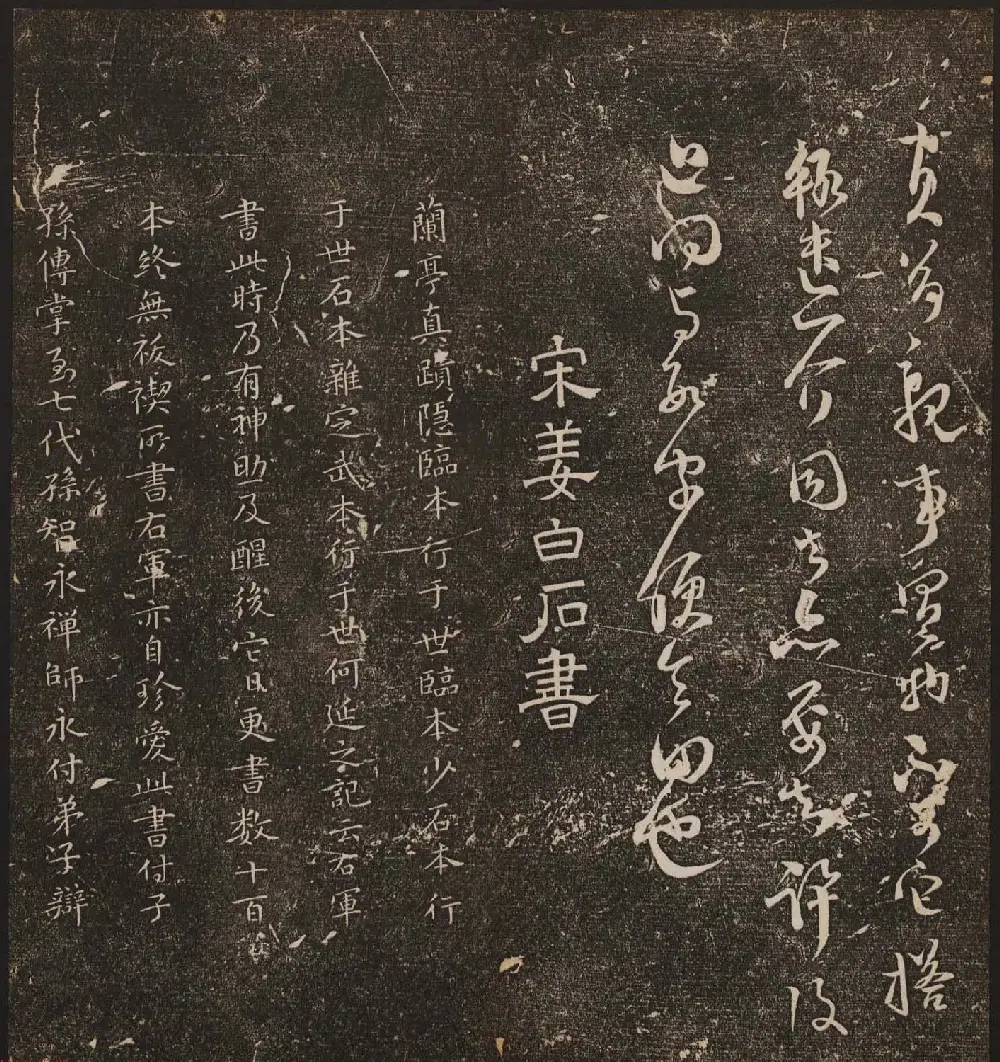 親事不審它
速介因許及
便令回也
宋姜白石書
蘭亭真蹟隱臨本行于世臨本少石本行
于世石本雜定武本行于世何延之記云右軍
書此時乃有神助及醒後它日更書數十百
本終無祓禊所書右軍亦自珍愛此書付子
孫傳掌至七代孫智永禪師永付弟子辯